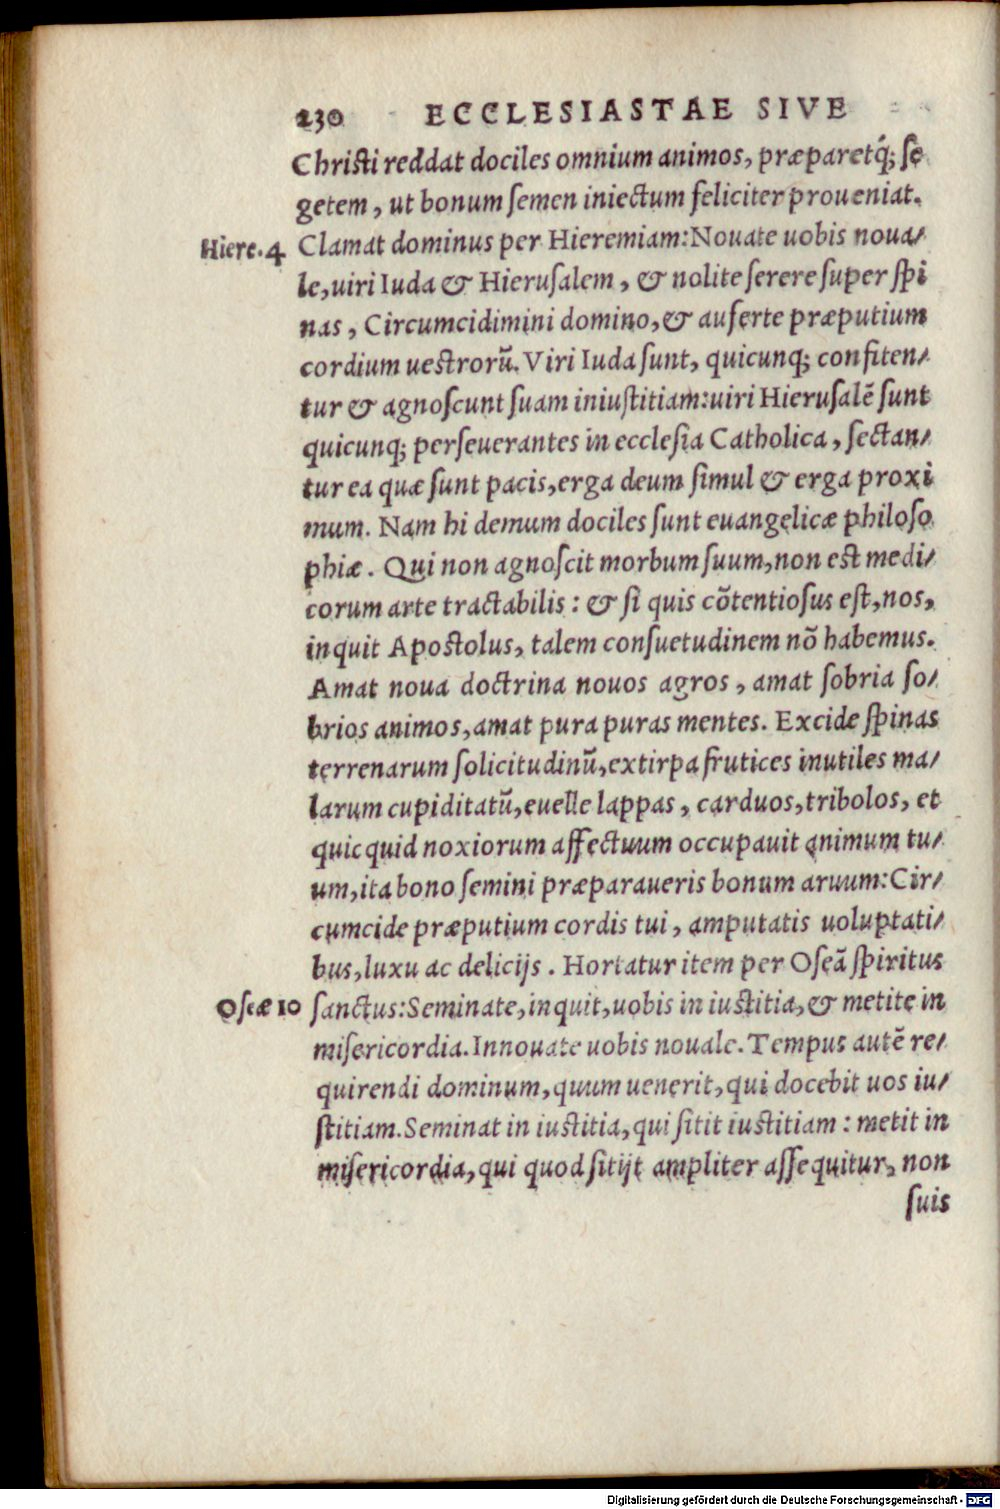 230 ECCLESIASTAE SIVE
Christi reddat dociles omnium animos, præparetq́; se
getem, ut bonum semen iniectum feliciter proueniat.
Hiere. 4 Clamat dominus per Hieremiam: Nouate uobis noua/
le, uiri Iuda & Hierusalem, & nolite serere super spi
nas, Circumcidimini domino, & auferte præputium
cordium uestrorũ. Viri Iuda sunt, quicunq; confiten/
tur & agnoscunt suam iniustitiam: uiri Hierusalẽ sunt
quicunq; perseuerantes in ecclesia Catholica, sectan/
tur ea quæ sunt pacis, erga deum simul & erga proxi
mum. Nam hi demum dociles sunt euangelicæ philoso
phiæ. Qui non agnoscit morbum suum, non est medi/
corum arte tractabilis: & si quis cõtentiosus est, nos,
inquit Apostolus, talem consuetudinem nõ habemus.
Amat noua doctrina nouos agros, amat sobria so/
brios animos, amat pura puras mentes. Excide spinas
terrenarum solicitudinũ, extirpa frutices inutiles ma/
larum cupiditatũ, euelle lappas, carduos, tribolos, et
quicquid noxiorum affectuum occupauit animum tu/
um, ita bono semini præparaueris bonum aruum: Cir/
cumcide præputium cordis tui, amputatis uoluptati/
bus, luxu ac delicijs. Hortatur item per Oseã spiritus
Oseæ 10 sanctus: Seminate, inquit, uobis in iustitia, & metite in
misericordia. Innouate uobis nouale. Tempus autẽ re/
quirendi dominum, quum uenerit, qui docebit uos iu/
stitiam. Seminat in iustitia, qui sitit iustitiam: metit in
misericordia, qui quod sitijt ampliter assequitur, non
suis
Digitalisierung gefördert durch die Deutsche Forschungsgemeinschaft - DFG